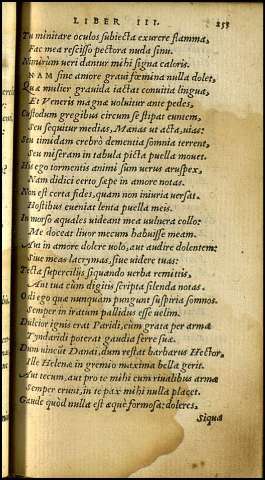 LIBER III. 255
Tu minitare oculos subiecta exurere flamma,
Fac mea rescisso pectora nuda sinu.
Nimirum ueri dantur mihi signa caloris.
NAM sine amore graui fœmina nulla dolet,
Quæ mulier grauida iactat conuitia lingua,
Et Veneris magnæ uoluitur ante pedes,
Custodum gregibus circum se stipat euntem,
Seu sequitur medias, Mænas ut acta, uias:
Seu timidam crebrò dementia somnia terrent,
Seu miseram in tabula picta puella mouet.
His ego tormentis animi sum uerus aruspex,
Nam didici certo sæpe in amore notas.
Non est certa fides, quam non iniuria uersat.
Hostibus eueniat lenta puella meis.
In morso æquales uideant mea uulnera collo:
Me doceat liuor mecum habuisse meam.
Aut in amore dolere uolo, aut audire dolentem:
Siue meas lacrymas, siue uidere tuas:
Tecta supercilijs siquando uerba remittis,
Aut tua cùm digitis scripta silenda notas.
Odi ego quæ nunquam pungunt suspiria somnos.
Semper in iratam pallidus esse uelim.
Dulcior ignis erat Paridi, cum grata per arma
Tyndaridi poterat gaudia ferre suæ.
Dum uincūt Danai, dum restat barbarus Hector,
Ille Helenæ in gremio maxima bella gerit.
Aut tecum, aut pro te mihi cum riualibus arma
Semper erunt, in te pax mihi nulla placet.
Gaude quòd nulla est æquè formosa: doleres,
Siqua